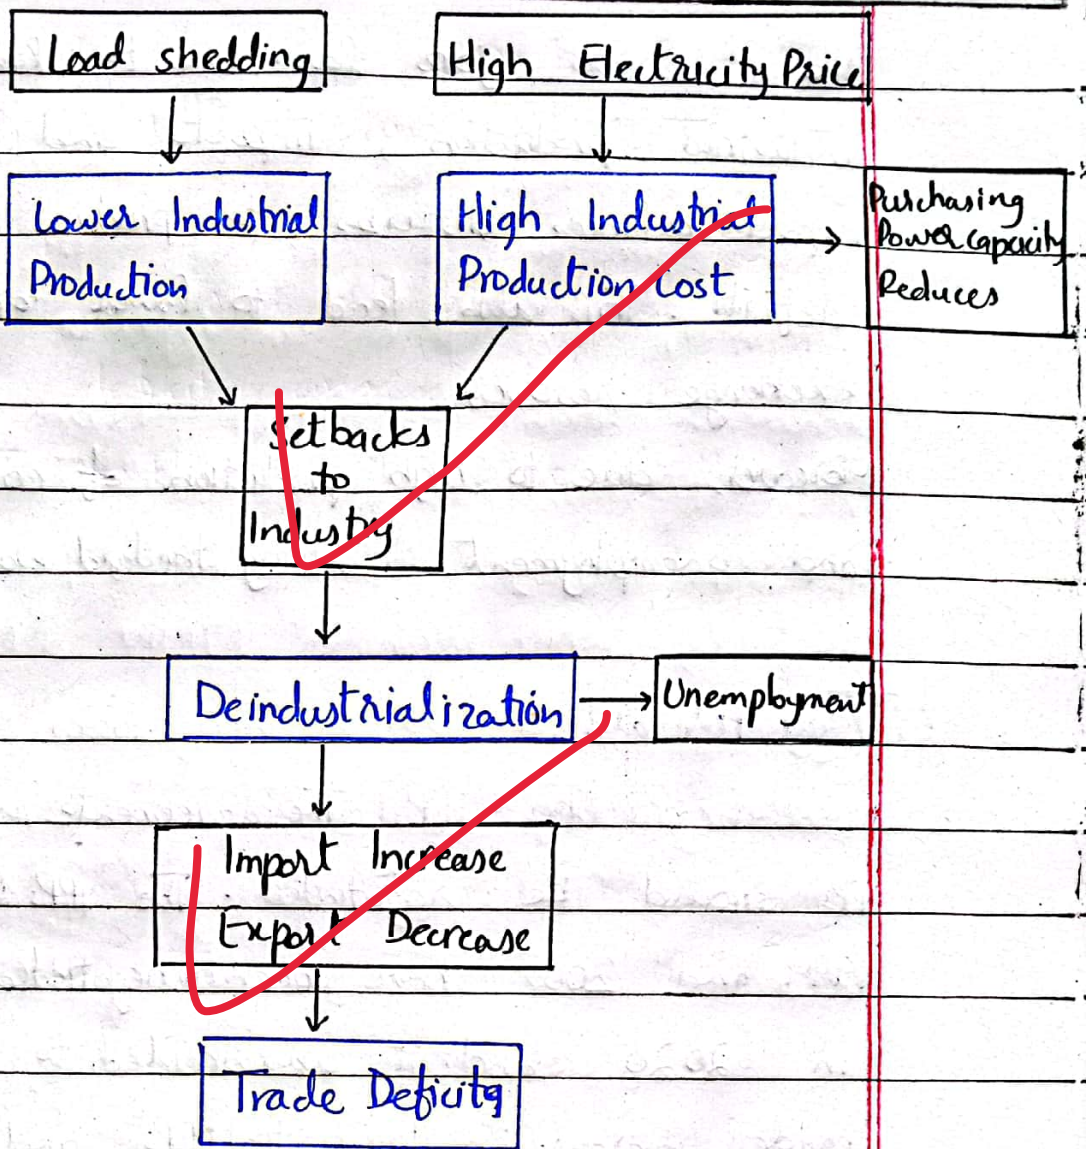 Load shedding
High Electricity Price
Lower Industrial
Production
High Industrial
Production Cost
Purchasing
Power capacity
Reduces
Setbacks
to
Industry
Deindustrialization
Unemployment
Import Increase
Export Decrease
Trade Deficity